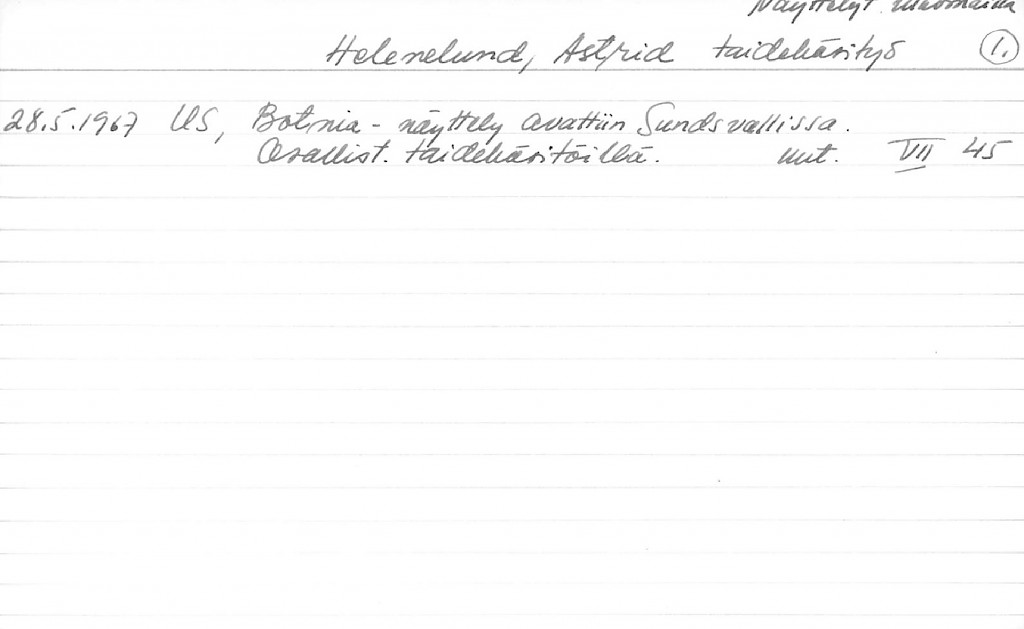 Näyttelyt ulkomailla
Helenelund, Astrid taidekäsityö 1.
28.5.1967 US, Botnia - näyttely avattiin Sundsvallissa.
Osallist. taidekäsitöillä. uut. VII 45